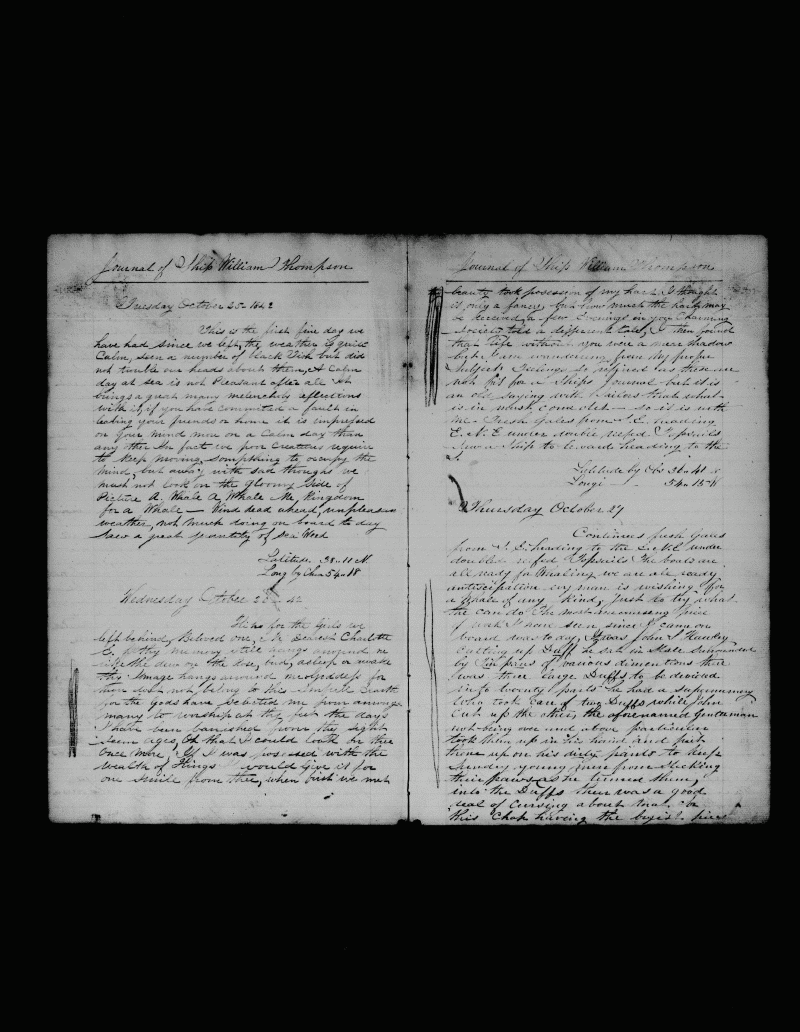 Journal of Ship William Thompson
Tuesday October 25 - 1842
This is the first fine day we
have had since we left, the weather is quite
Calm, seen a number of black Fish but did
not trouble our heads about them, A Calm
day at sea is not Pleasant after all it
brings a great many melencholy reflections
with it, if you have committed a fault in
leaving your friends or home it is impressed
on your mind more on a Calm day than
any other In fact we poor Creatures require
to keep moving, something to occupy the
mind, but away with sad thoughts we
must not look on the gloomy side of
Picture A. Whale A, Whale Me, Kingdom
for a Whale — Wind dead ahead, unpleasant
weather, not much doing on board to day
Saw a great quantity of Sea Weed
Latitude 38 - 11 N.
Long by Chro 54 - 18
Wednesday October 26 - 42
for the Girls we
left behind, Beloved one, Dearest Charlotte
thy memory still hangs around me
like the dew on the Rose, bud, asleep or awake
thy Image hangs around me
thou not belong to this Earth
for the gods have selected from amongst
many to worship at thy feet the days
I have been banished from thy sight
Seem ages, Oh that I could look on thee
Once more, If I was possessed with the
wealth of Kings would give it for
one smile from thee, when first we met
Journal of Ship William Thompson
beauty took possession of my hart I thought
it only a fancy, but how much the hart may
be deceived a few Evenings in your Charming
Society told a different tale, I then found
that life without you were a mere shadow
but I am wandering from my proper
Subject feelings so refined as these are
not fit for a Ships Journal but it is
an old saying with Sailors that what
is in must come out — so it is with
me - Fresh Gales from S.E. heading
E.N.E under double reefed Topsails
Saw a Ship to leward heading to the
S.
Latitude by Obs 36 - 41
Longi - 54 - 15
Thursday October 27
Continues fresh Gales
from S. E. heading to the E.N.E under
double reefed Topsails The boats are
all ready for Whaling we are all ready
antiscipation evry man is wishing for
a Whale of any Kind, Just to try what
the can do The most amuseing piece
of work I have seen, since I came on
board was to day, It was John S Hawley
Cutting up Duff he sat in State Surrounded
by Tin pans of various dimentions there
was three large Duffs to be devided
into twenty parts he had a
who took care of two Duffs while John
Cut up the other, the aforenamed Gentleman
not being over and above particular
took them up in his hand and put
them up on his dirty pants to keep
Sundry young from Sticking
their paws as he turned them,
into the Duffs there was a good
deal of Cursing about that
this Chap haveing the bigist piece